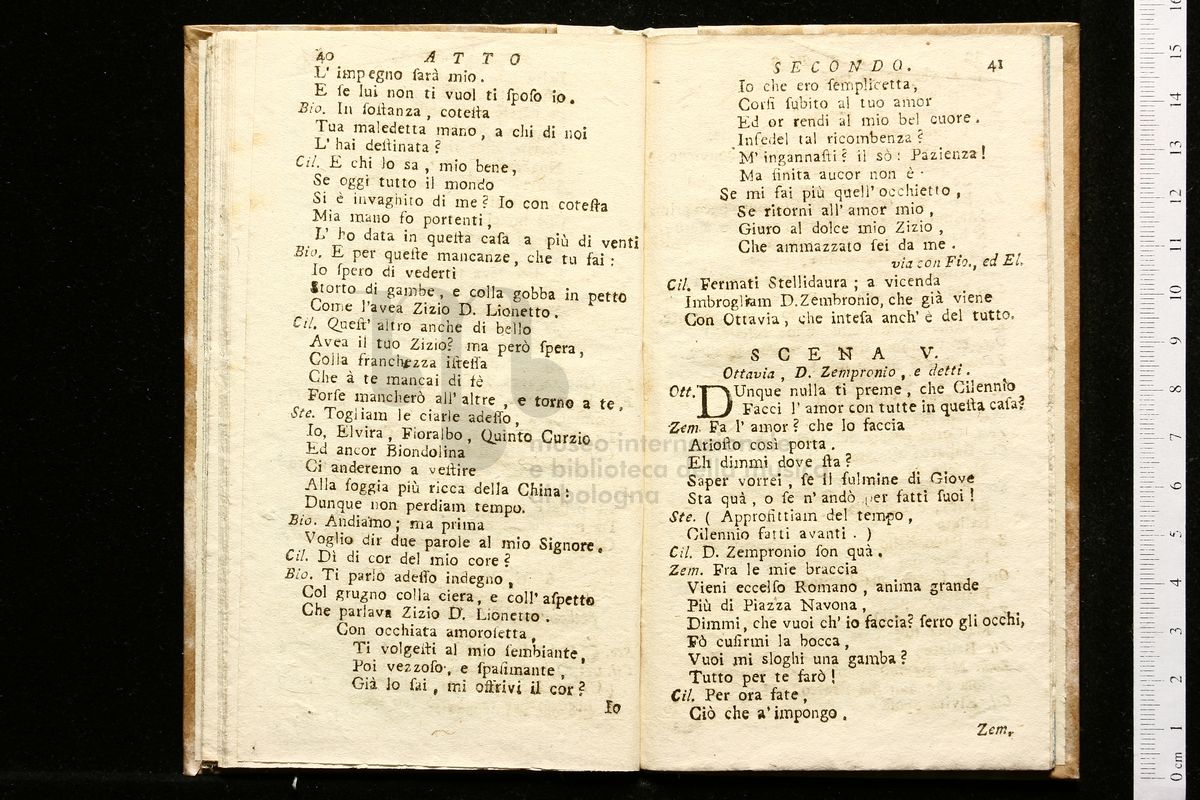 40 ATTO
L' impegno ſarà mio.
E ſe lui non ti vuol ti ſpoſo io.
Bio. In ſoſtanza, coteſta
Tua maledetta mano, a chi di noi
L' hai deſtinata?
Cil. E chi lo sa, mio bene,
Se oggi tutto il mondo
Si è invaghito di me? Io con coteſta
Mia mano fo portenti,
L' ho data in queſta caſa a più di venti
Bio. E per queſte mancanze, che tu fai:
Io ſpero di vederti
Storto di gambe, e colla gobba in petto
Come l'avea Zizio D. Lionetto.
Cil. Queſt' altro anche di bello
Avea il tuo Zizio? ma però ſpera,
Colla franchezza iſteſſa
Che à te mancai di fè
Forſe mancherò all' altre, e torno a te.
Ste. Togliam le ciarle adeſſo,
Io, Elvira, Fioralbo, Quinto Curzio
Ed ancor Biondolina
Ci anderemo a veſtire
Alla foggia più ricca della China:
Dunque non perdiam tempo.
Bio. Andiamo; ma prima
Voglio dir due parole al mio Signore.
Cil. Dì di cor del mio core?
Bio. Ti parlo adeſſo indegno,
Col grugno colla ciera, e coll' aſpetto
Che parlava Zizio D. Lionetto.
Con occhiata amoroſetta,
Ti volgeſti al mio ſembiante,
Poi vezzoſo, e ſpaſimante,
Già lo ſai, mi offrivi il cor?
Io
SECONDO. 41
Io che ero ſemplicetta,
Corſi ſubito al tuo amor
Ed or rendi al mio bel cuore.
Infedel tal ricombenza?
M' ingannaſti? il sò: Pazienza!
Ma finita aucor non è.
Se mi fai più quell' occhietto,
Se ritorni all' amor mio,
Giuro al dolce mio Zizio,
Che ammazzato ſei da me.
via con Fio., ed El.
Cil. Fermati Stellidaura; a vicenda
Imbrogliam D. Zembronio, che già viene
Con Ottavia, che inteſa anch' è del tutto.
SCENA V.
Ottavia, D. Zempronio, e detti.
Ott. DUnque nulla ti preme, che Cilennio
Facci l' amor con tutte in queſta caſa?
Zem. Fa l' amor? che lo faccia
Arioſto così porta.
Eh dimmi dove ſta?
Saper vorrei, ſe il fulmine di Giove
Sta quà, o ſe n' andò per fatti ſuoi!
Ste. ( Approfittiam del tempo,
Cilennio fatti avanti. )
Cil. D. Zempronio ſon quà.
Zem. Fra le mie braccia
Vieni eccelſo Romano, anima grande
Più di Piazza Navona,
Dimmi, che vuoi ch' io faccia? ſerro gli occhi,
Fò cuſirmi la bocca,
Vuoi mi sloghi una gamba?
Tutto per te farò!
Cil. Per ora fate,
Ciò che a' impongo.
Zem.
museo internazionale
e biblioteca della musica
di bologna
0 cm 1 2 3 4 5 6 7 8 9 10 11 12 13 14 15 16